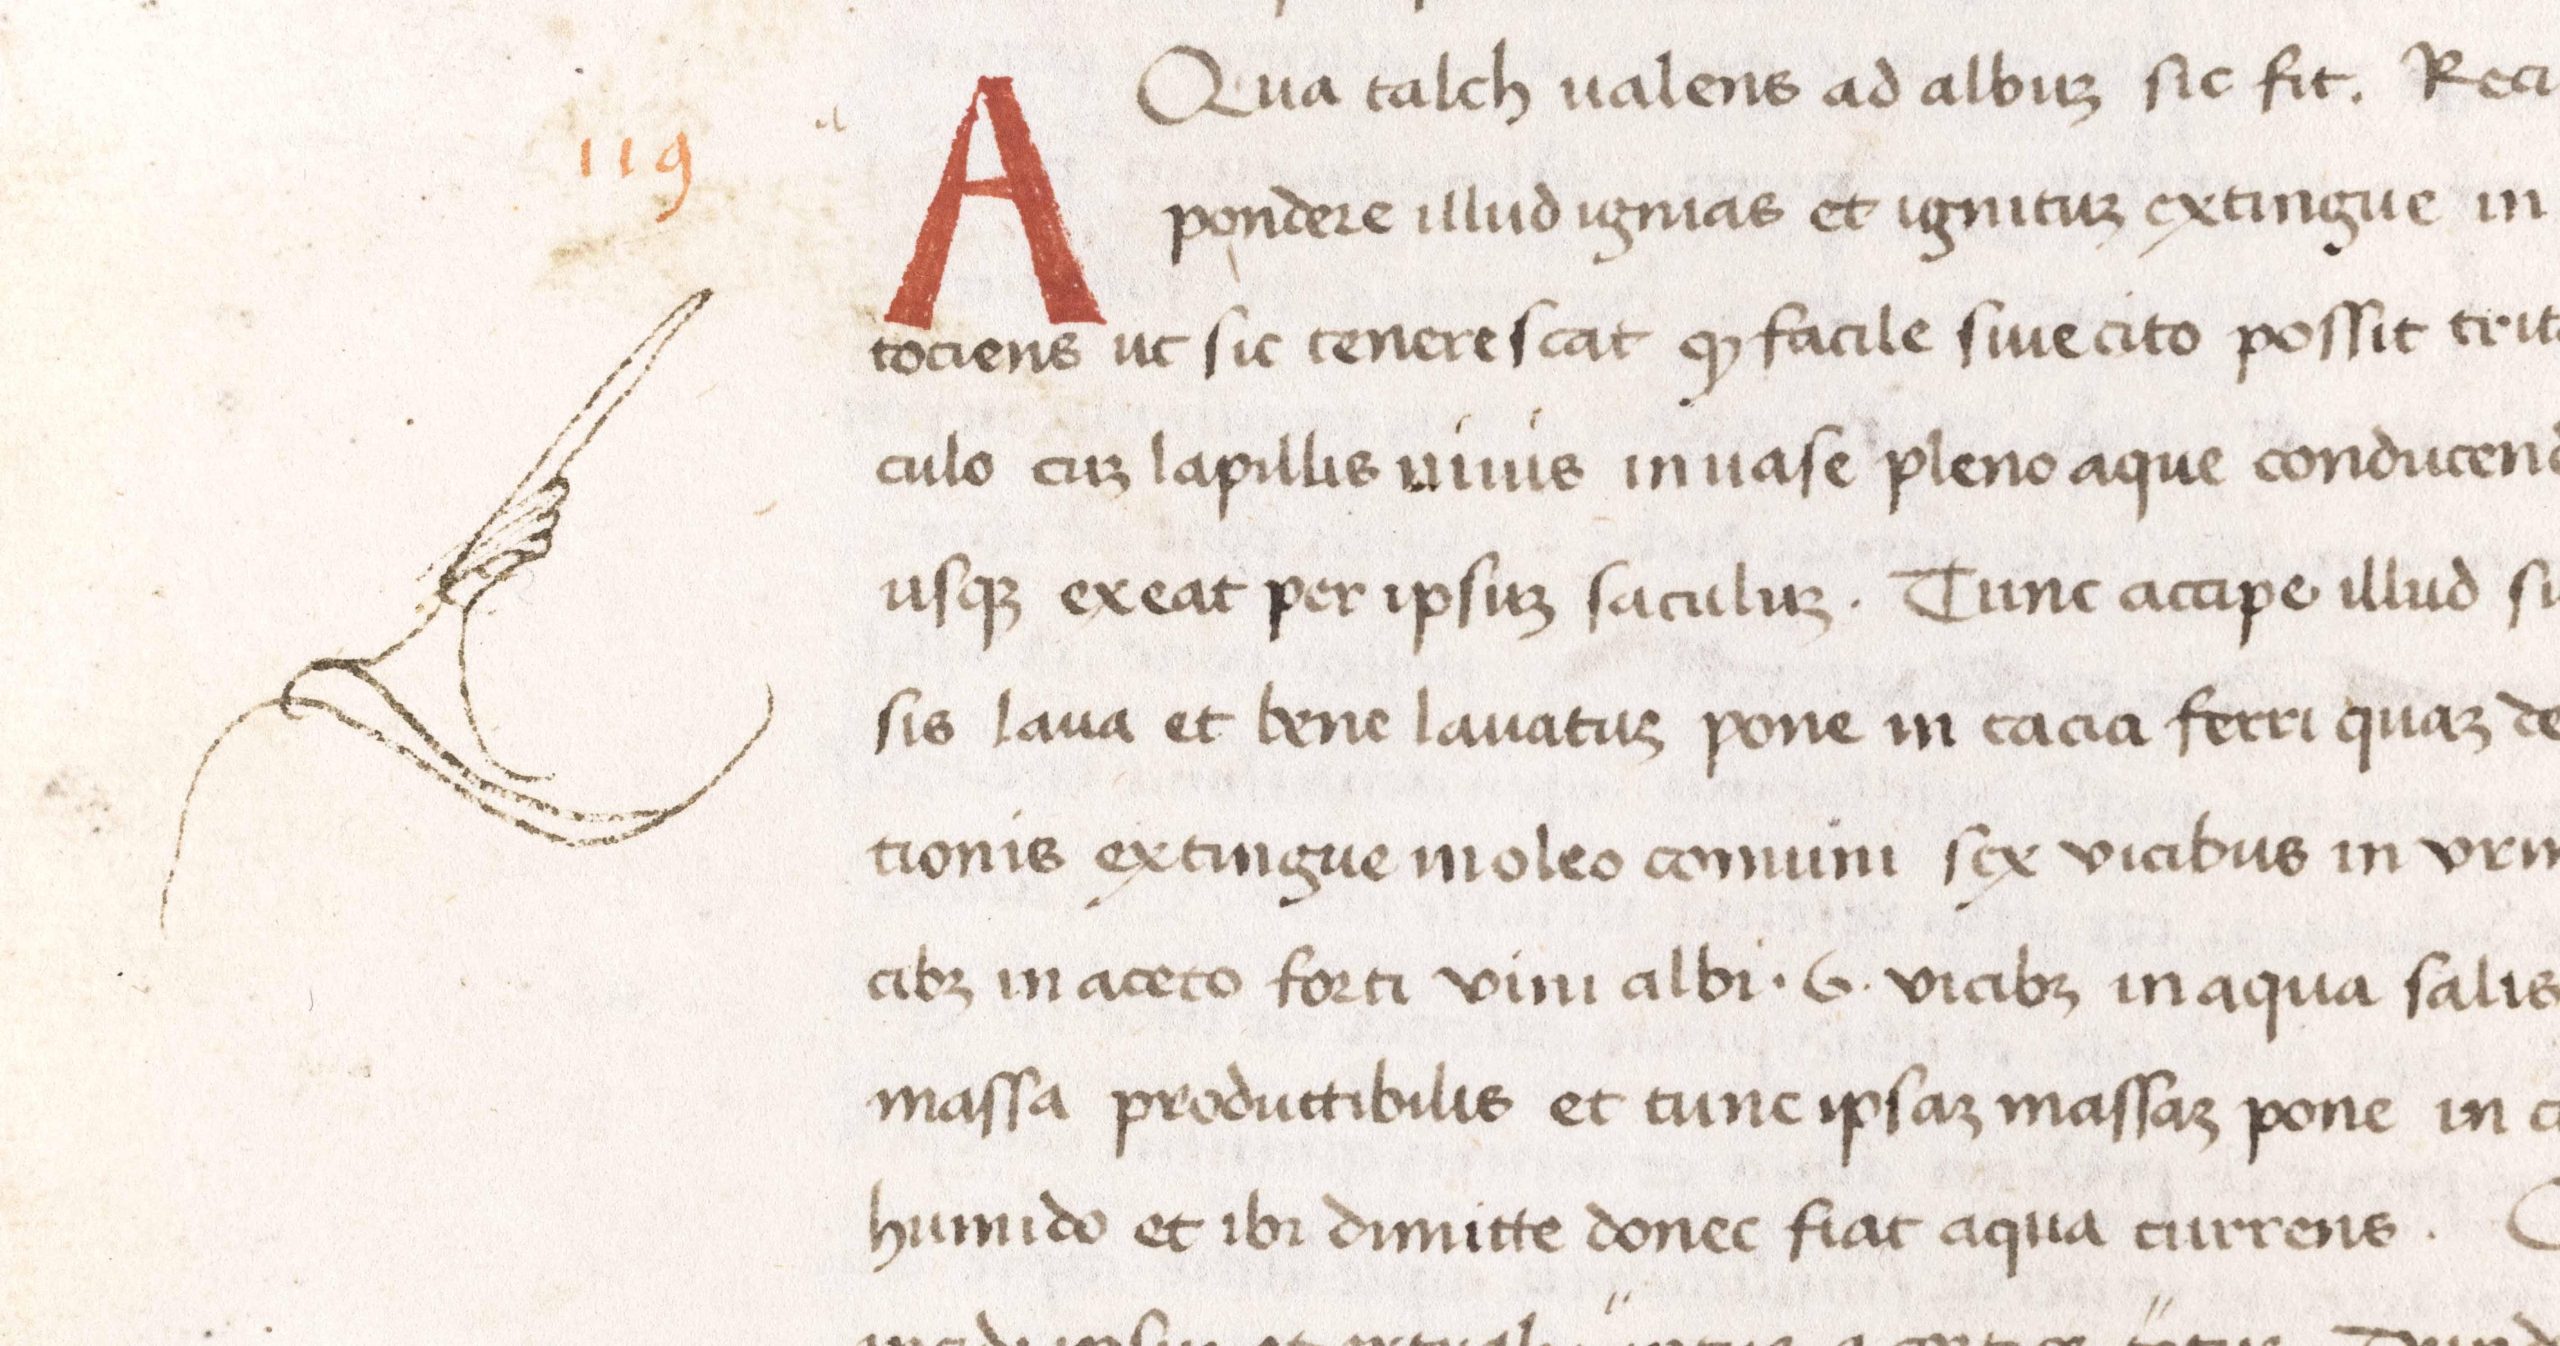 119
AQua talch ualens ad albuꝫ sic fit. Reci
pondere illud ignias et ignituꝫ extingue in
tociens ut sic tenerescat ꝙ facile siue cito possit trit
culo cuꝫ lapillis uiuis in uase pleno aque conducend
usqꝫ exeat per ipsuꝫ saculuꝫ. Tunc accipe illud su
sis laua et bene lauatuꝫ pone in cacia ferri quaꝫ de
tionis extingue in oleo comuni sex vicibus in vrin
cibꝫ in aceto forti vini albi · 6 · vicibꝫ in aqua salis
massa productibilis et tunc ipsaꝫ massaꝫ pone in c
humido et ibi dimitte donec fiat aqua currens .